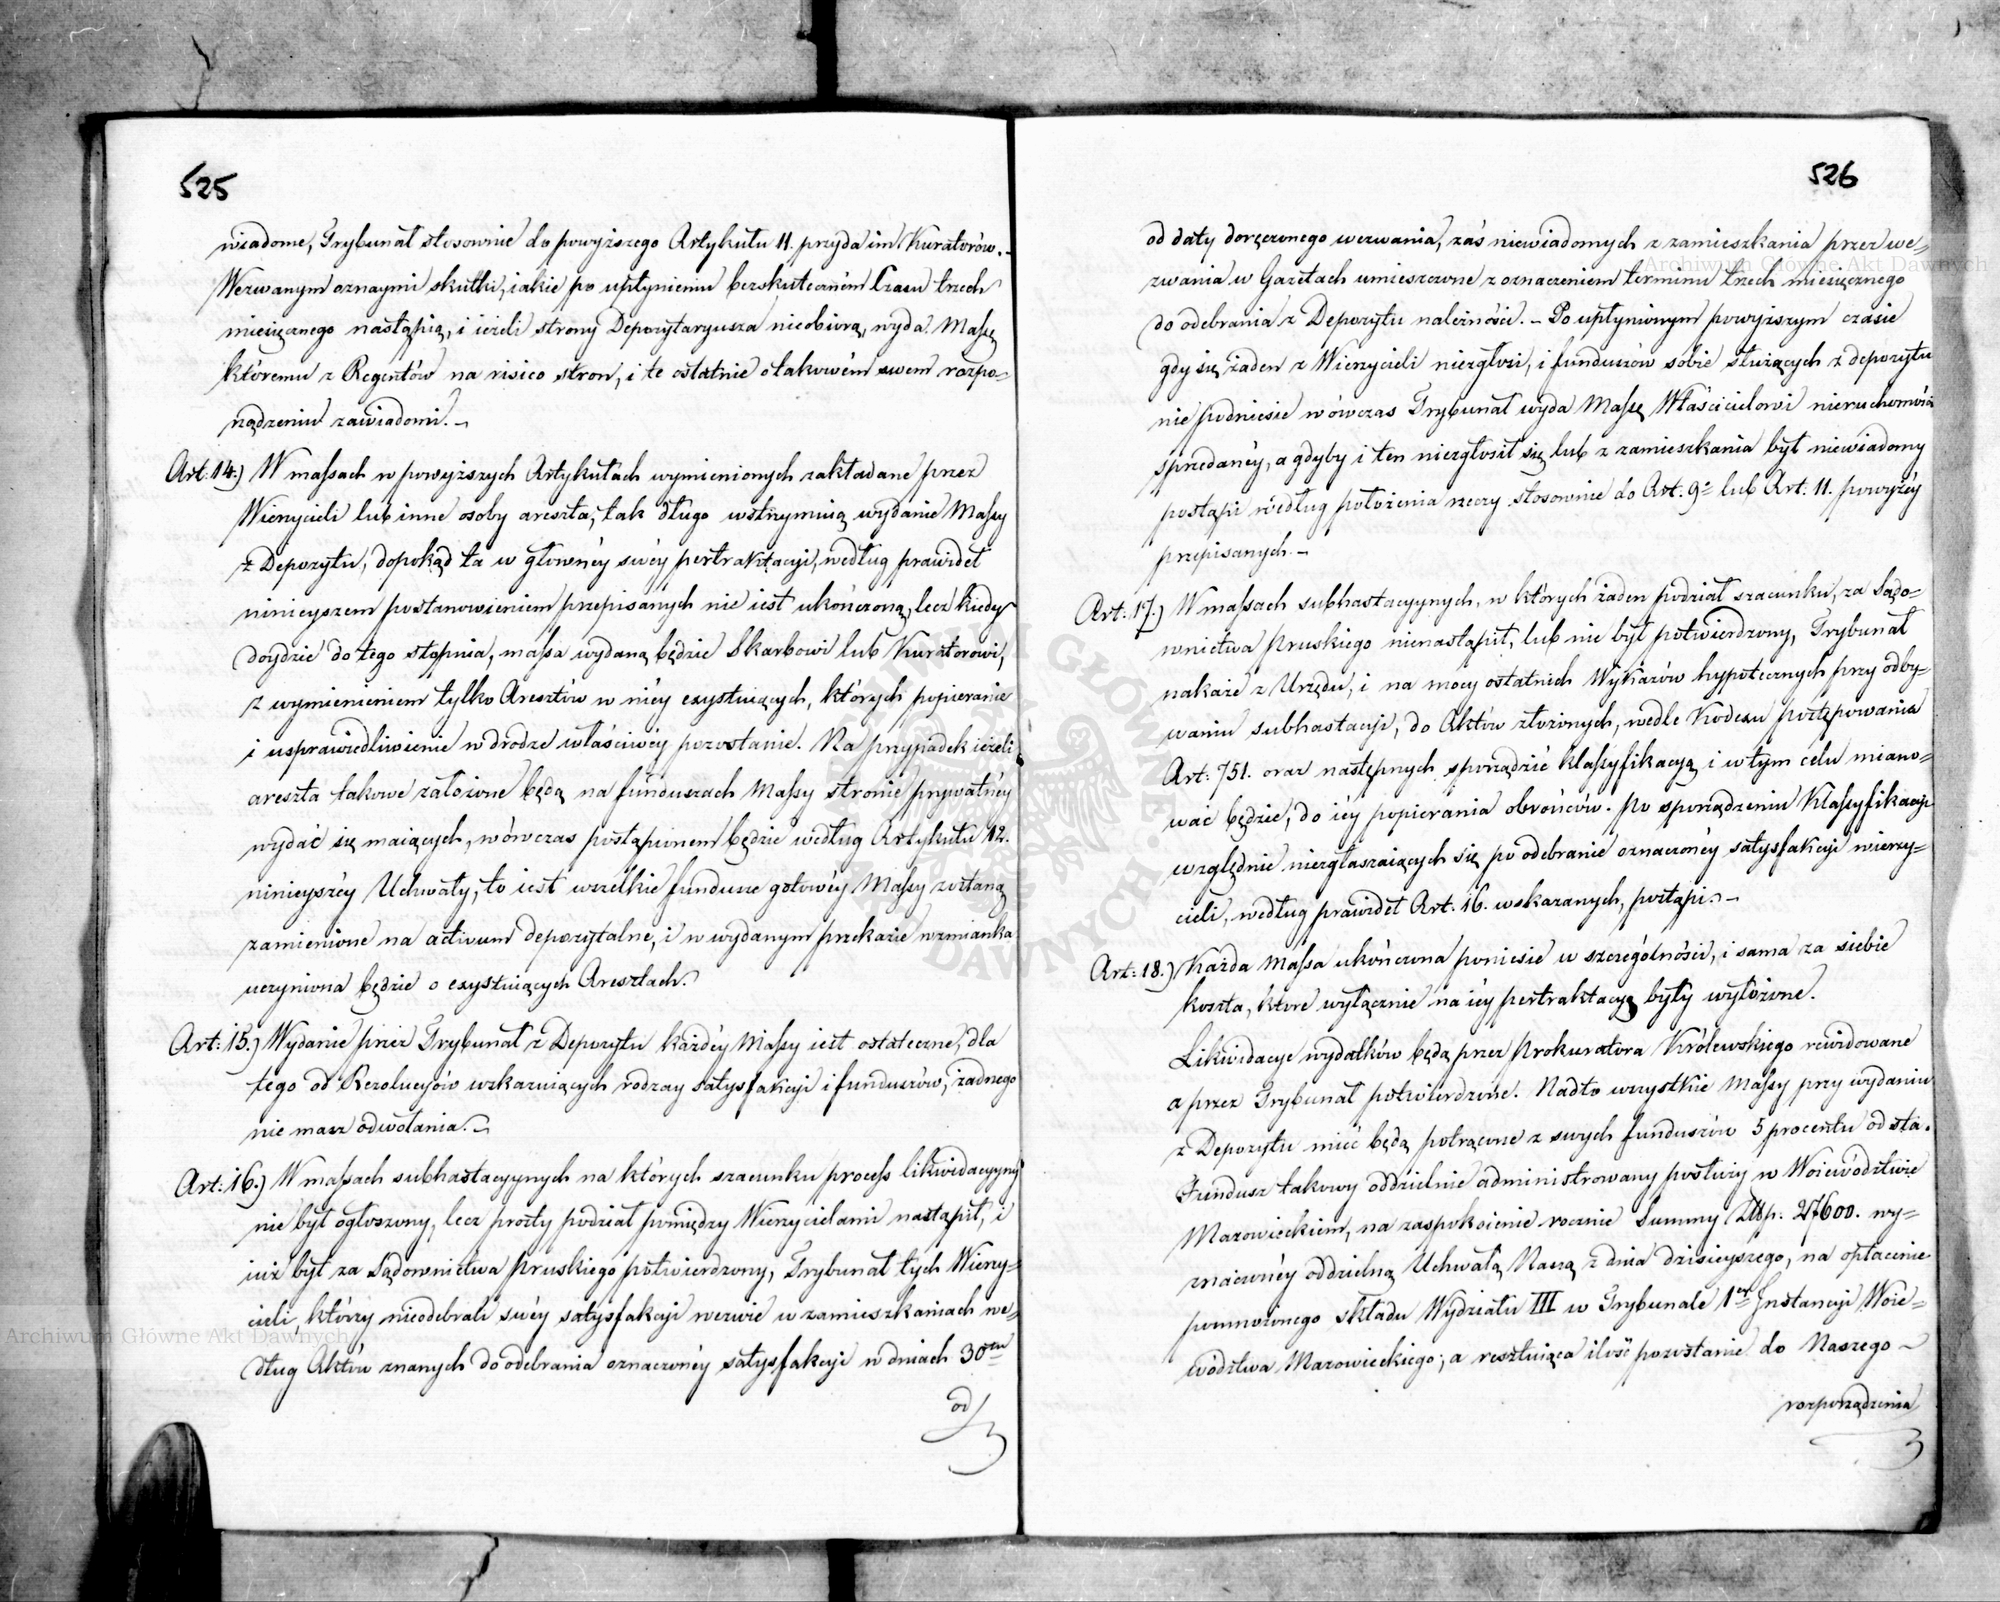 525
wiadome, Trybunał stosownie do powyższego Artykułu 11. przyda im Kuratorów. –
Wezwanym oznaymi skutki, iakie po upłynieniu bezskuteczném Czasu trzech
miesięcznego nastąpią, i ieżeli strony Depozytaryusza nieobiorą, wyda Massę
któremu z Regentów na risico stron, i te ostatnie o takowém swem rozpo=
rządzeniu zawiadomi. –
Art: 14.) W massach w powyższych Artykułach wymienionych zakładane przez
Wierzycieli lub inne osoby areszta, tak długo wstrzymują wydanie Massy
z Depozytu, dopokąd ta w głównéy swéy pertraktacyi, według prawideł
ninieyszem postanowieniem przepisanych nie iest ukończoną, lecz kiedy
doydzie do tego stopnia, massa wydaną będzie Skarbowi lub Kuratorowi,
z wymienieniem tylko Aresztów w niéy exystuiących, których popieranie
i usprawiedliwienie w drodze właściwéy pozostanie. Na przypadek ieżeli
areszta takowe założone będą na funduszach Massy stronie prywatnéy
wydać się maiących, wówczas postąpionem będzie według Artykułu 12.
ninieyszéy Uchwały, to iest wszelkie fundusze gotowéy Massy zostaną
zamienione na activum depozytalne, i w wydanym przekazie wzmianka
uczyniona będzie o exystuiących Aresztach.
Art: 15.) Wydanie przez Trybunał z Depozytu każdéy Massy iest ostateczne, dla
tego od Rezolucyów wskazuiących rodzay satysfakcyi i funduszów, żadnego
nie masz odwołania. –
Art: 16.) W massach subhastacyynych na których szacunku process likwidacyyny
nie był ogłoszony, lecz prosty podział pomiędzy Wierzycielami nastąpił, i
iuż był za Sądownictwa Pruskiego potwierdzony, Trybunał tych Wierzy=
cieli, którzy nieodebrali swéy satysfakcyi wezwie w zamieszkaniach we=
dług Aktów znanych do odebrania oznaczonéy satysfakcyi w dniach 30tu
od
526
od daty doręczonego wezwania, zaś niewiadomych z zamieszkania przez we=
zwania w Gazetach umieszczone z oznaczeniem terminu trzech miesięcznego
do odebrania z Depozytu należności. – Po upłynionym powyższym czasie
gdy się żaden z Wierzycieli niezgłosi, i funduszów sobie służących z depozytu
nie podniesie wówczas Trybunał wyda Massę Właścicielowi nieruchomości
sprzedanéy, a gdyby i ten niezgłosił się lub z zamieszkania był niewiadomy
postąpi według położenia rzeczy stosownie do Art. 9o lub Art. 11. powyżéy
przepisanych. –
Art: 17.) W massach subhastacyynych, w których żaden podział szacunku, za Sądo=
wnictwa Pruskiego nienastąpił, lub nie był potwierdzony, Trybunał
nakaże z Urzędu, i na mocy ostatnich Wykazów hypotecznych przy odby=
waniu subhastacyi, do Aktów złożonych, wedle Kodexu postępowania
Art: 751. oraz następnych sporządzić klassyfikacyą i w tym celu miano=
wać będzie, do iéy popierania obrońców. Po sporządzeniu Klassyfikacyi
względnie niezgłaszaiących się po odebranie oznaczonéy satysfakcyi wierzy=
cieli, według prawideł Art. 16. wskazanych, postąpi. –
Art: 18.) Każda Massa ukończona poniesie w szczególności, i sama za siebie
koszta, które wyłącznie na iéy pertraktacyą były wyłożone.
Likwidacye wydatków będą przez Prokuratora Królewskiego rewidowane
a przez Trybunał potwierdzone. Nadto wszystkie Massy przy wydaniu
z Depozytu mieć będą potrącone z swych funduszów 5 procentu od sta.
Fundusz takowy oddzielnie administrowany posłuży w Woiewództwie
Mazowieckiem, na zaspokoienie rocznie Summy Złtp. 27600. wy=
znaczonéy oddzielną Uchwałą Naszą z dnia dzisieyszego, na opłacenie
pomnożonego składu Wydziału III w Trybunale 1ey Instancyi Woie=
wództwa Mazowieckiego; a resztuiąca ilość pozostanie do Naszego –
rozporządzenia